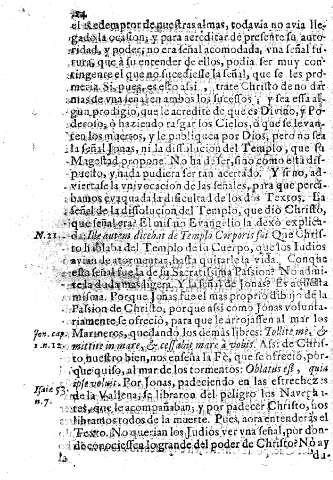 el Redemptor de nuestras almas, todavia no avia lle-
gado la ocasion; y para acreditar de presente su auto-
ridad, y poder, no era señal acomodada, vna señal fu-
tura, que à su entender de ellos, podia ser muy con
tingente el que no sucediesse la señal, que se les pro-
metia Si, pues, es esto assi, trate Christo de no dar
mas de vna señal en ambos los sucessos, y sea essa al-
gun prodigio, que le acredite de que es Divino, y Po-
deroso, ò haziendo rasgar los Cielos, ò que se levan-
ten los muertos, y le publiquen por Dios, pero no sea
la señal Jonas, ni la dissolucion del Templo, que su
Magestad propone. No ha de ser, sino como està dis-
puesto, y nada pudiera ser tan acertado. Y si no, ad-
viertase la vnivocacion de las señales, para que perci-
bamos evaquada la dificultad de los dos Textos. La
señal de la dissolucion del Templo, que diò Christo,
que señal era? El mismo Evangelio la dexò explica-
N.21. da. Ille autem dicebat de Templo Corporis sui Que Chris-
to hablaba del Templo de su Cuerpo, que los Iudios
avian de atormentar, hasta quitarle la vida. Con que
esta señal fue la de su Sacratissima Passion? No admi-
te la duda mas digera. Y la señal de Jonas? Es aquesta
misma. Porque Jonas fue el mas proprio dibujo de la
Passion de Christo, porque assi como Jonas volunta-
riamente se ofreciò, para que le arrojassen al mar los
Jon. cap. Marineros, quedando los demàs libres: Tollite me, &
1.n.12. mittite in mare, & cessabit mare à vobis. Assi de Chris-
to nuestro bien, nos enseña la Fè, que se ofreciò, por-
que quiso, al mar de los tormentos: Oblatus est, quia
Isaiæ 53. ipse voluit. Por Jonas, padeciendo en las estrechezes
n.7. de la Vallena, se libraron del peligro los Navegan-
tes, que le acompañaban; y por padecer Christo, nos
libramos todos de la muerte. Pues aora entenderàs el
Texto. No querian los Judios ver vna señal, por don-
de conociessen lo grande del poder de Christo? No ay
du-